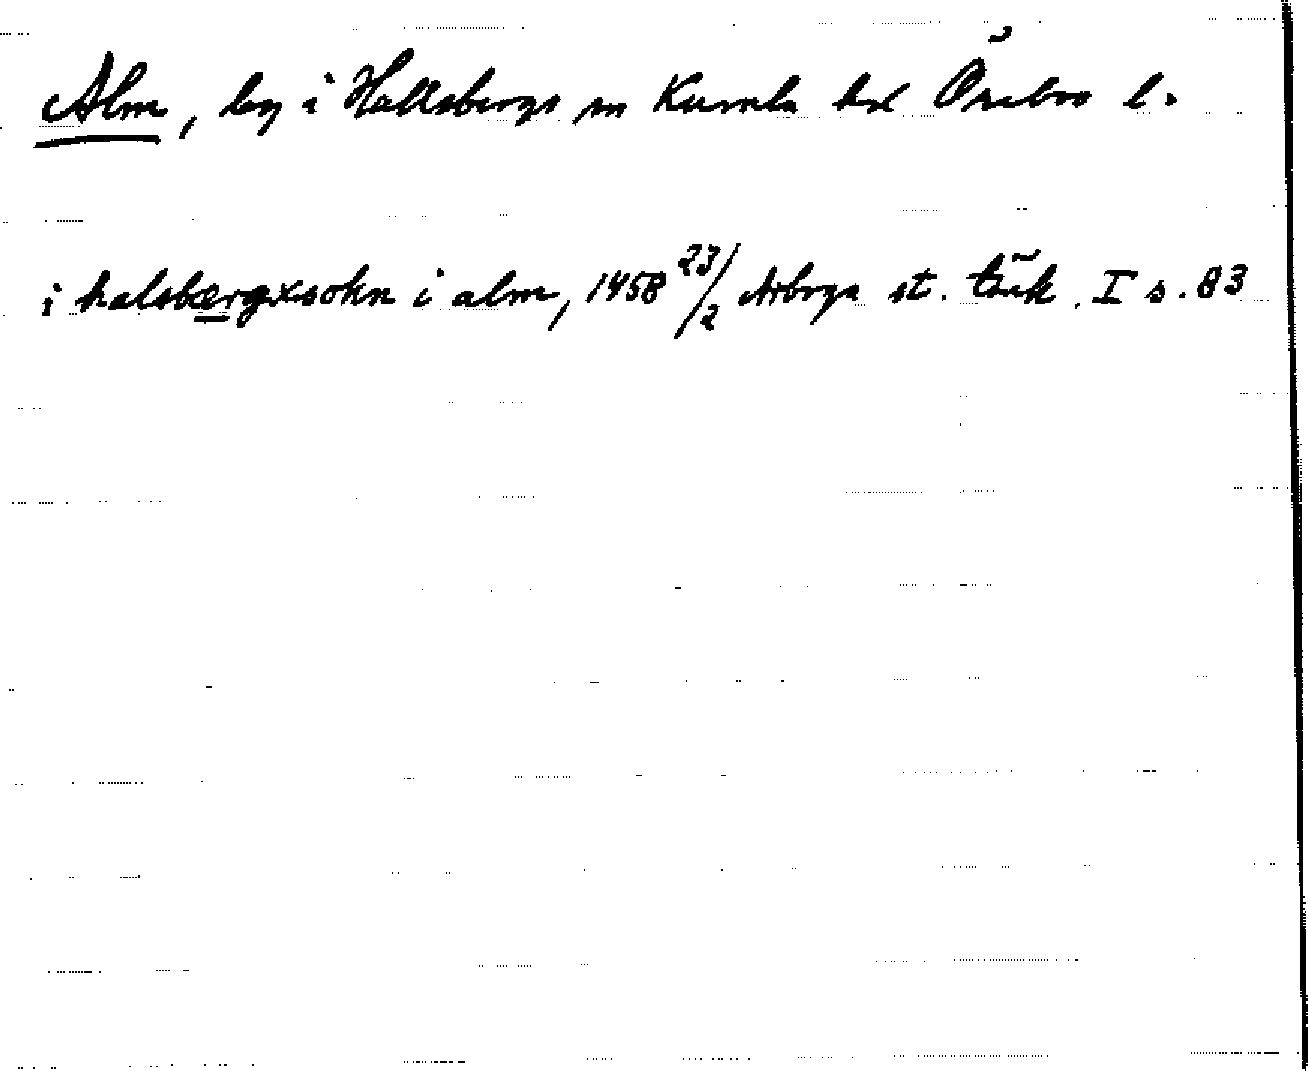 Alm, by i Hallsbergs sn Kumla hd Örebro l.
i halsbærgxsokn i alm, 1458 23/2 Arboga st. tänk. I s. 83